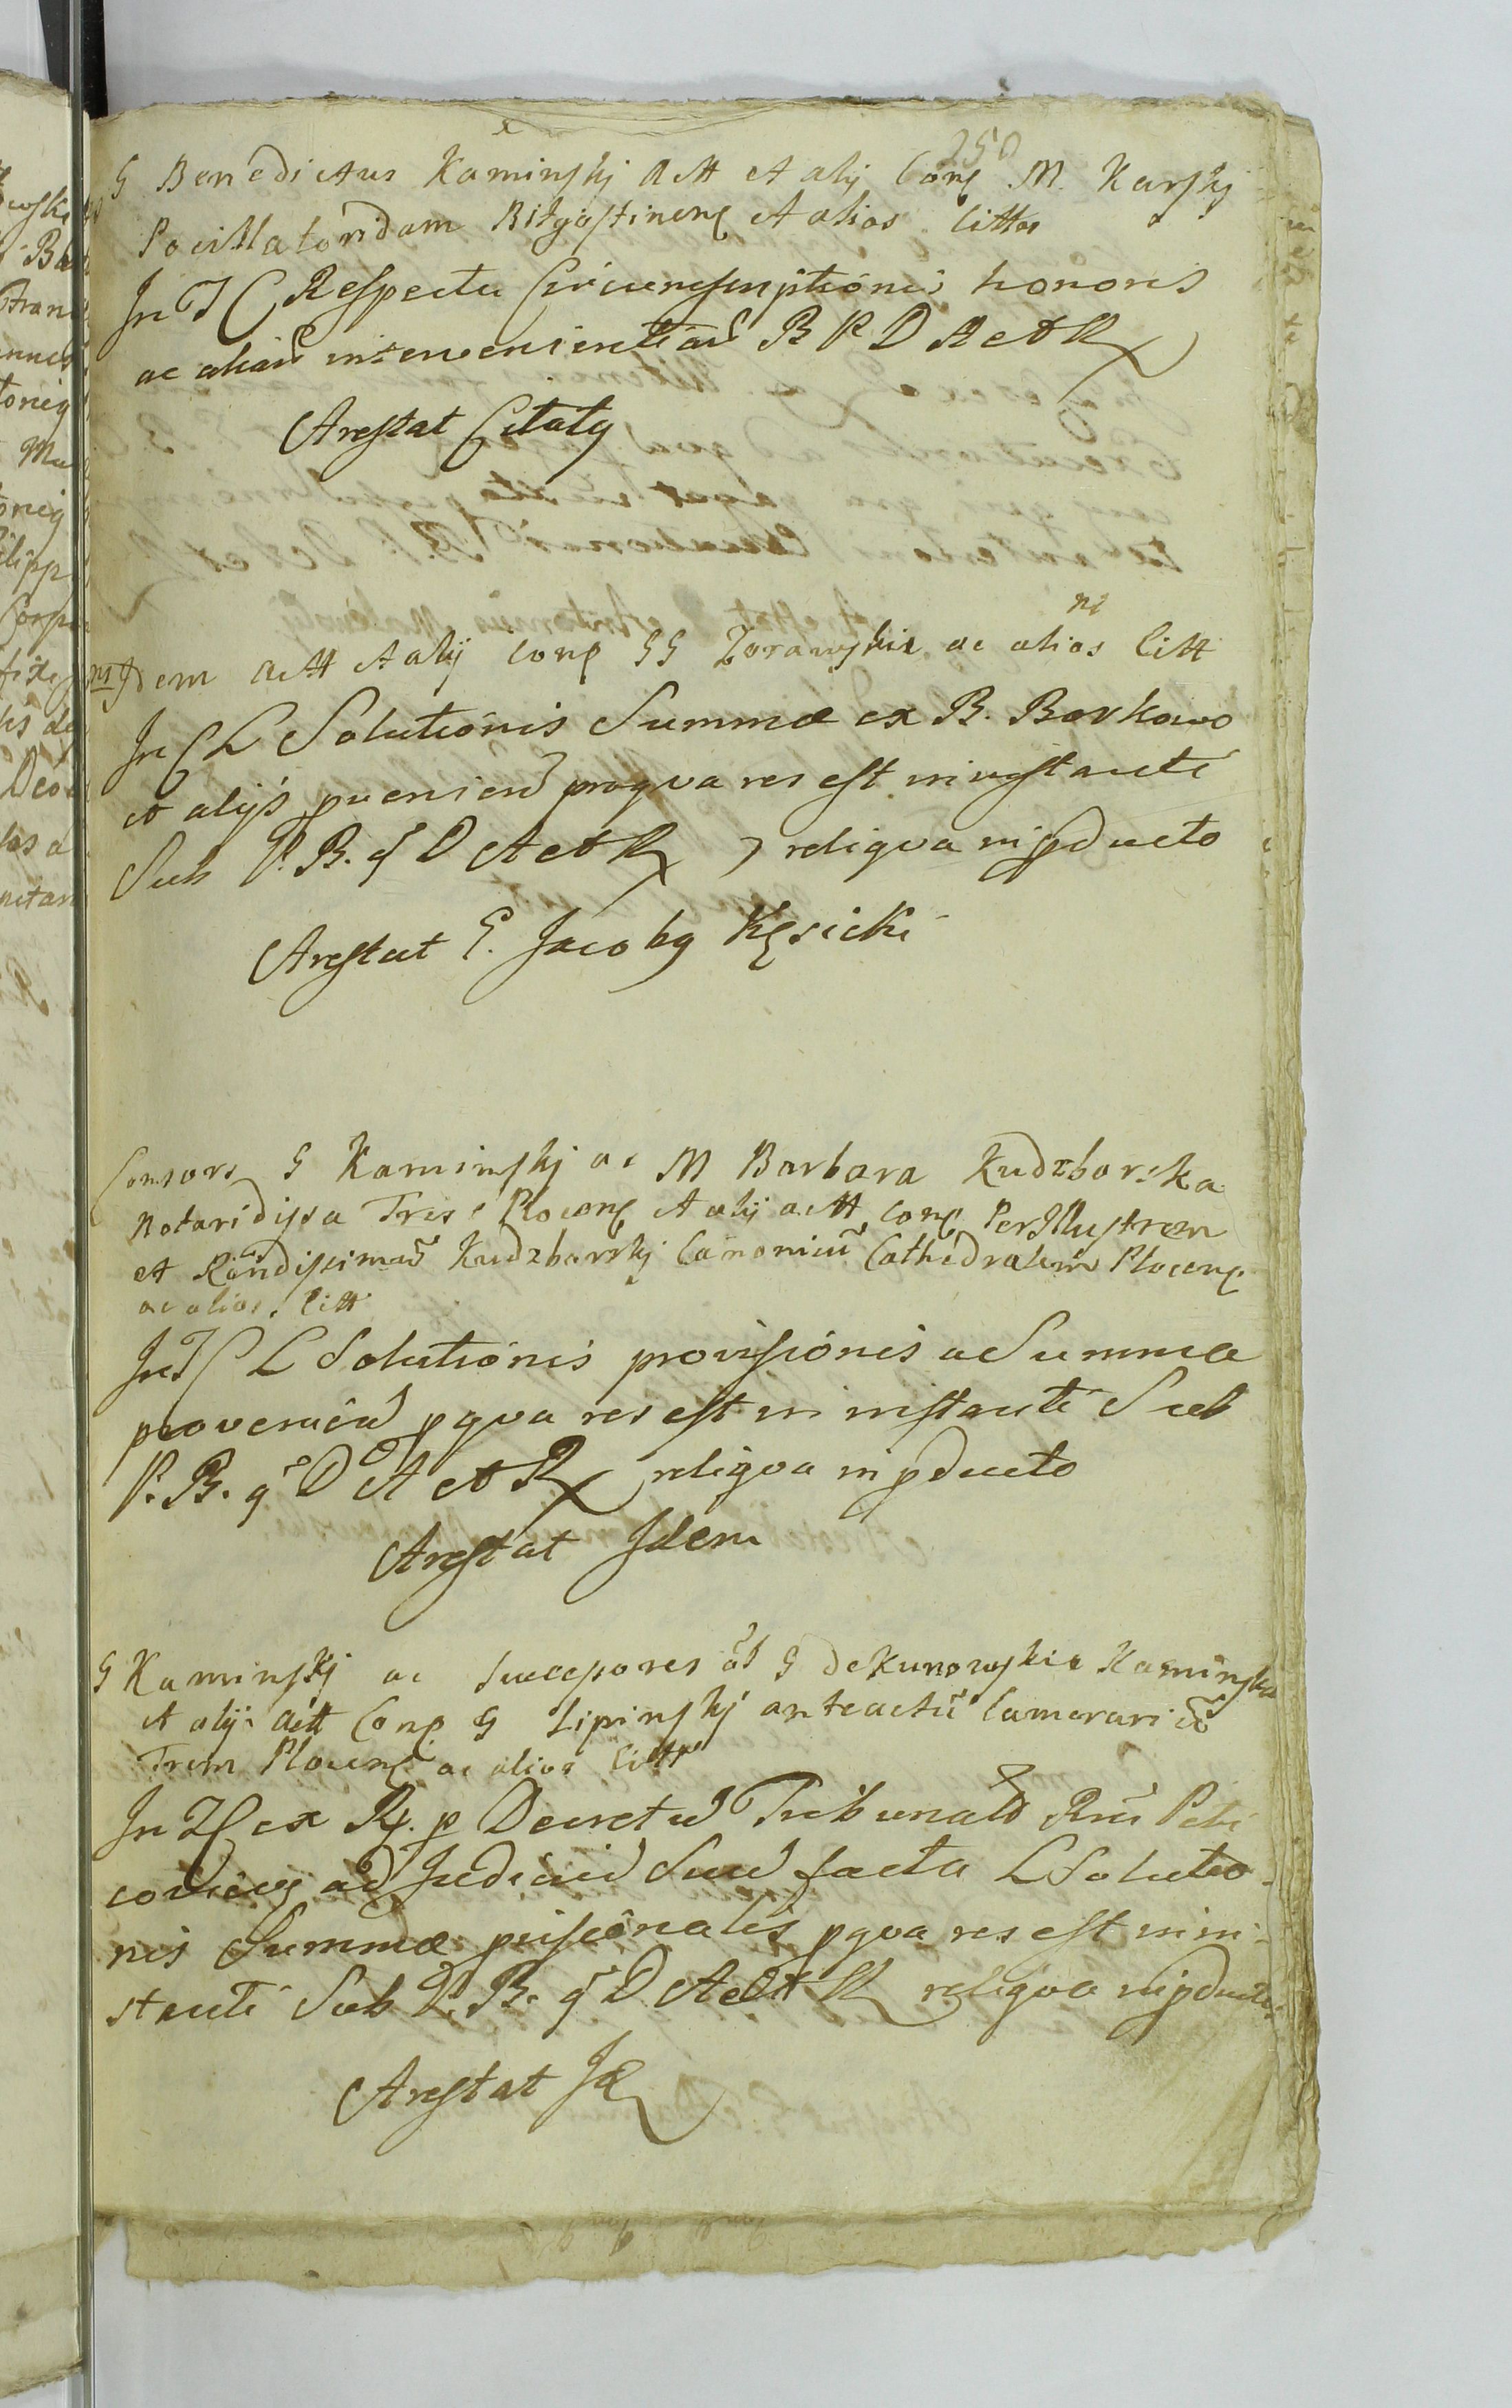 250
G Benedictus Kaminskj Actt et alij Conq M. Karskj
Pocillatoridam Bitgostinenq et alios litta
In T C Respectu Circumscriptionis honoris
ac alias intervenientiaru B P D A et R
Arestat Citatq
ni
Idem actt et alij conq GG Zorawskie ac alios litt
In C L Solutionis Summæ ex B. Borkowo
et alijs pveniend proqva res est in instanti
Sub P. B. q D A et R reliqva in pducto
Arestat G. Jacobq Kęsicki
Consors G Kaminskj ac M Barbara Kudzborska
Notaridissa Tris Plocenq et alij actt conq PerIllustrem
et Rāndissimū Kudzborskj Canonicū Cathedralem Plocenq
ac alios litt
In T C L Solutionis provisionis a Summa
proveniend pqva res est in instanti Sub
P. B. q D A et R reliqva in pducto
Arestat Idem
G Kaminskj ac Successores ol G de Kunowskie Kaminska
et alij actt Conq G Lipinskj anteactū Camerariū
Trem Plocenq ac alios litt
In T C ex R. p Decretū Tribunalis Rni Petri
coviens ad Judiciū Suū facta L Solutio
nis Summæ pvisionalis pqva res est in in
stanti Sub P. B. q D A et R reliqva in pducto
Arestat Id